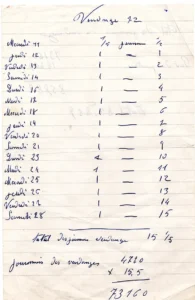 Vendange 22
Mercredi 11 1/2 journée 1/2
jeudi 12 1 — 1
Vendredi 13 1 — 2
Samedi 14 1 — 3
Lundi 16 1 — 4
Mardi 17 1 — 5
Mercredi 18 1 — 6
jeudi 19 1 — 7
Vendredi 20 1 — 8
Samedi 21 1 — 9
Lundi 23 1 — 10
Mardi 24 1 — 11
Mercredi 25 1 — 12
jeudi 26 1 — 13
Vendredi 27 1 — 14
Samedi 28 1 — 15
Total des journées vendange 15 1/2
journées des vendanges 4720
x 15,5
73160